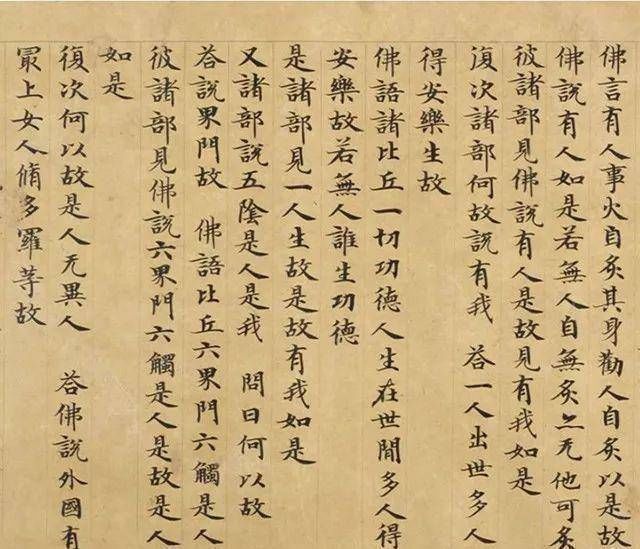 佛言有人事火自炙其身勸人自炙以是故
佛說有人如是若無人自無炙亦无他可炙
彼諸部見佛說有人是故見有我如是
復次諸部何故說有我 荅一人出世多人
得安樂生故
佛語諸比丘一切功德人生在世閒多人得
安樂故若無人誰生功德
是諸部見一人生故是故有我如是
又諸部說五陰是人是我 問曰何以故
荅說界門故 佛語比丘六界門六觸是人
彼諸部見佛說六界門六觸是人是故是人
如是
復次何以故是人无異人 荅佛說外國有
冣上女人脩多羅等故